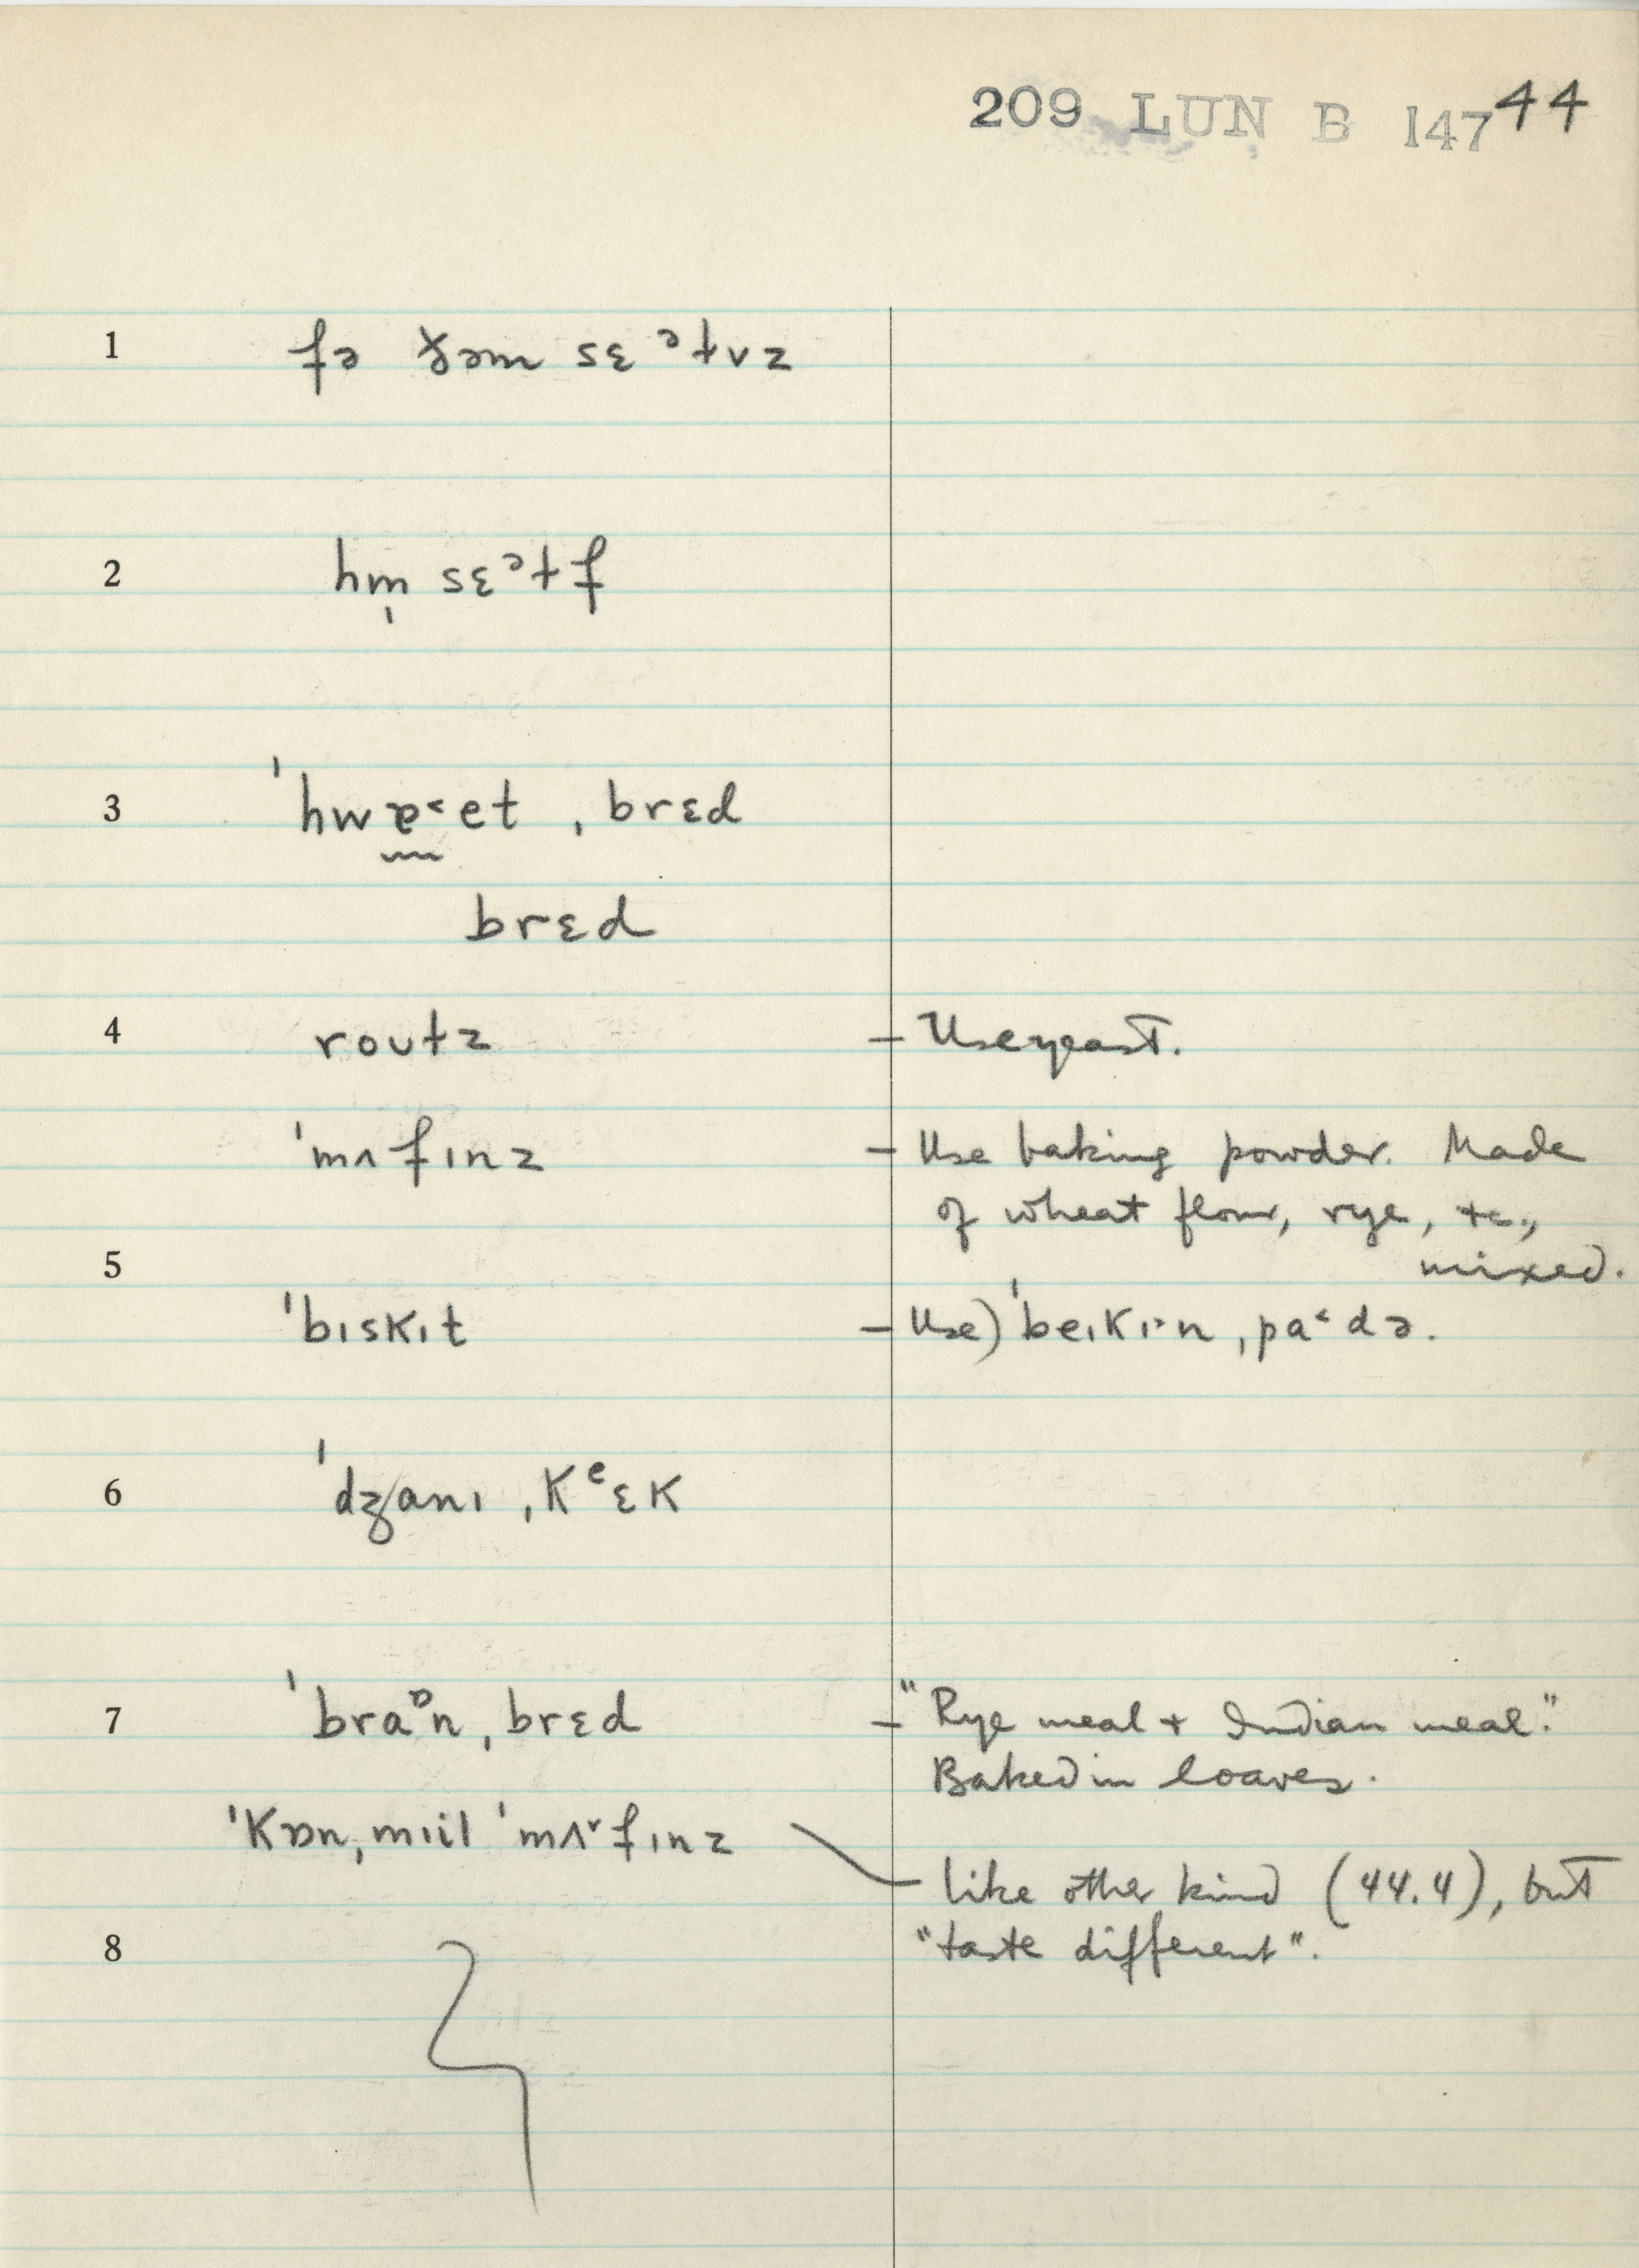 209 LUN B 147 44
1 fə ðəm sɛᵊɫvz
2 hm̩ sɛᵊɫf
3 ˈhwɐ˂et ˌbrɛd
brɛd
4 roʊɫz – Use yeast.
ˈmʌfɪnz – Use baking powder. Made
of wheat flour, rye, +c.,
5 mixed.
ˈbɪskɪt – Use) ˈbeɪkɪ˃n ˌpa˂də.
6 ˈdʒanɪ ˌkᵉɛk
7 ˈbraᶛn ˌbrɛd – "Rye meal + Indian meal."
Baked in loaves.
ˈkɒn ˌmɪil ˈmʌ˅fɪnz
– like other kind (44.4), but
8 "taste different".